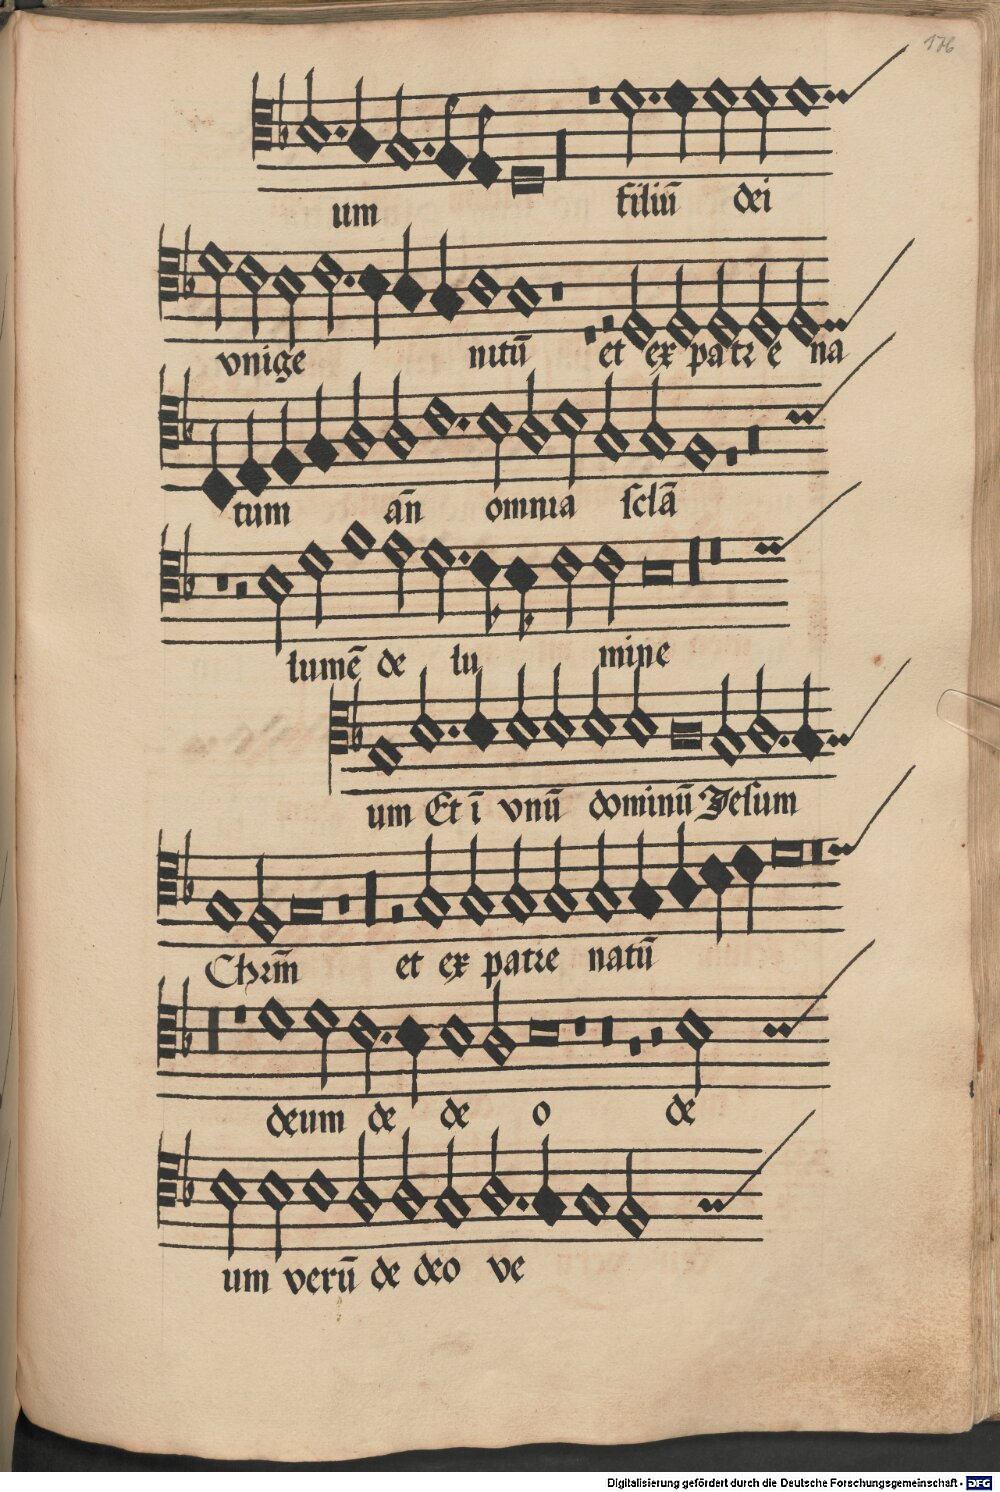 176
um filiū dei
vnige nitū et ex patre na
tum an̄ omnia sclā
lumē de lu mine
um Et ī vnū dominū Jesum
Chrm̄ et ex patre natū
deum de de o de
um verū de deo ve
Digitalisierung gefördert durch die Deutsche Forschungsgemeinschaft - DFG